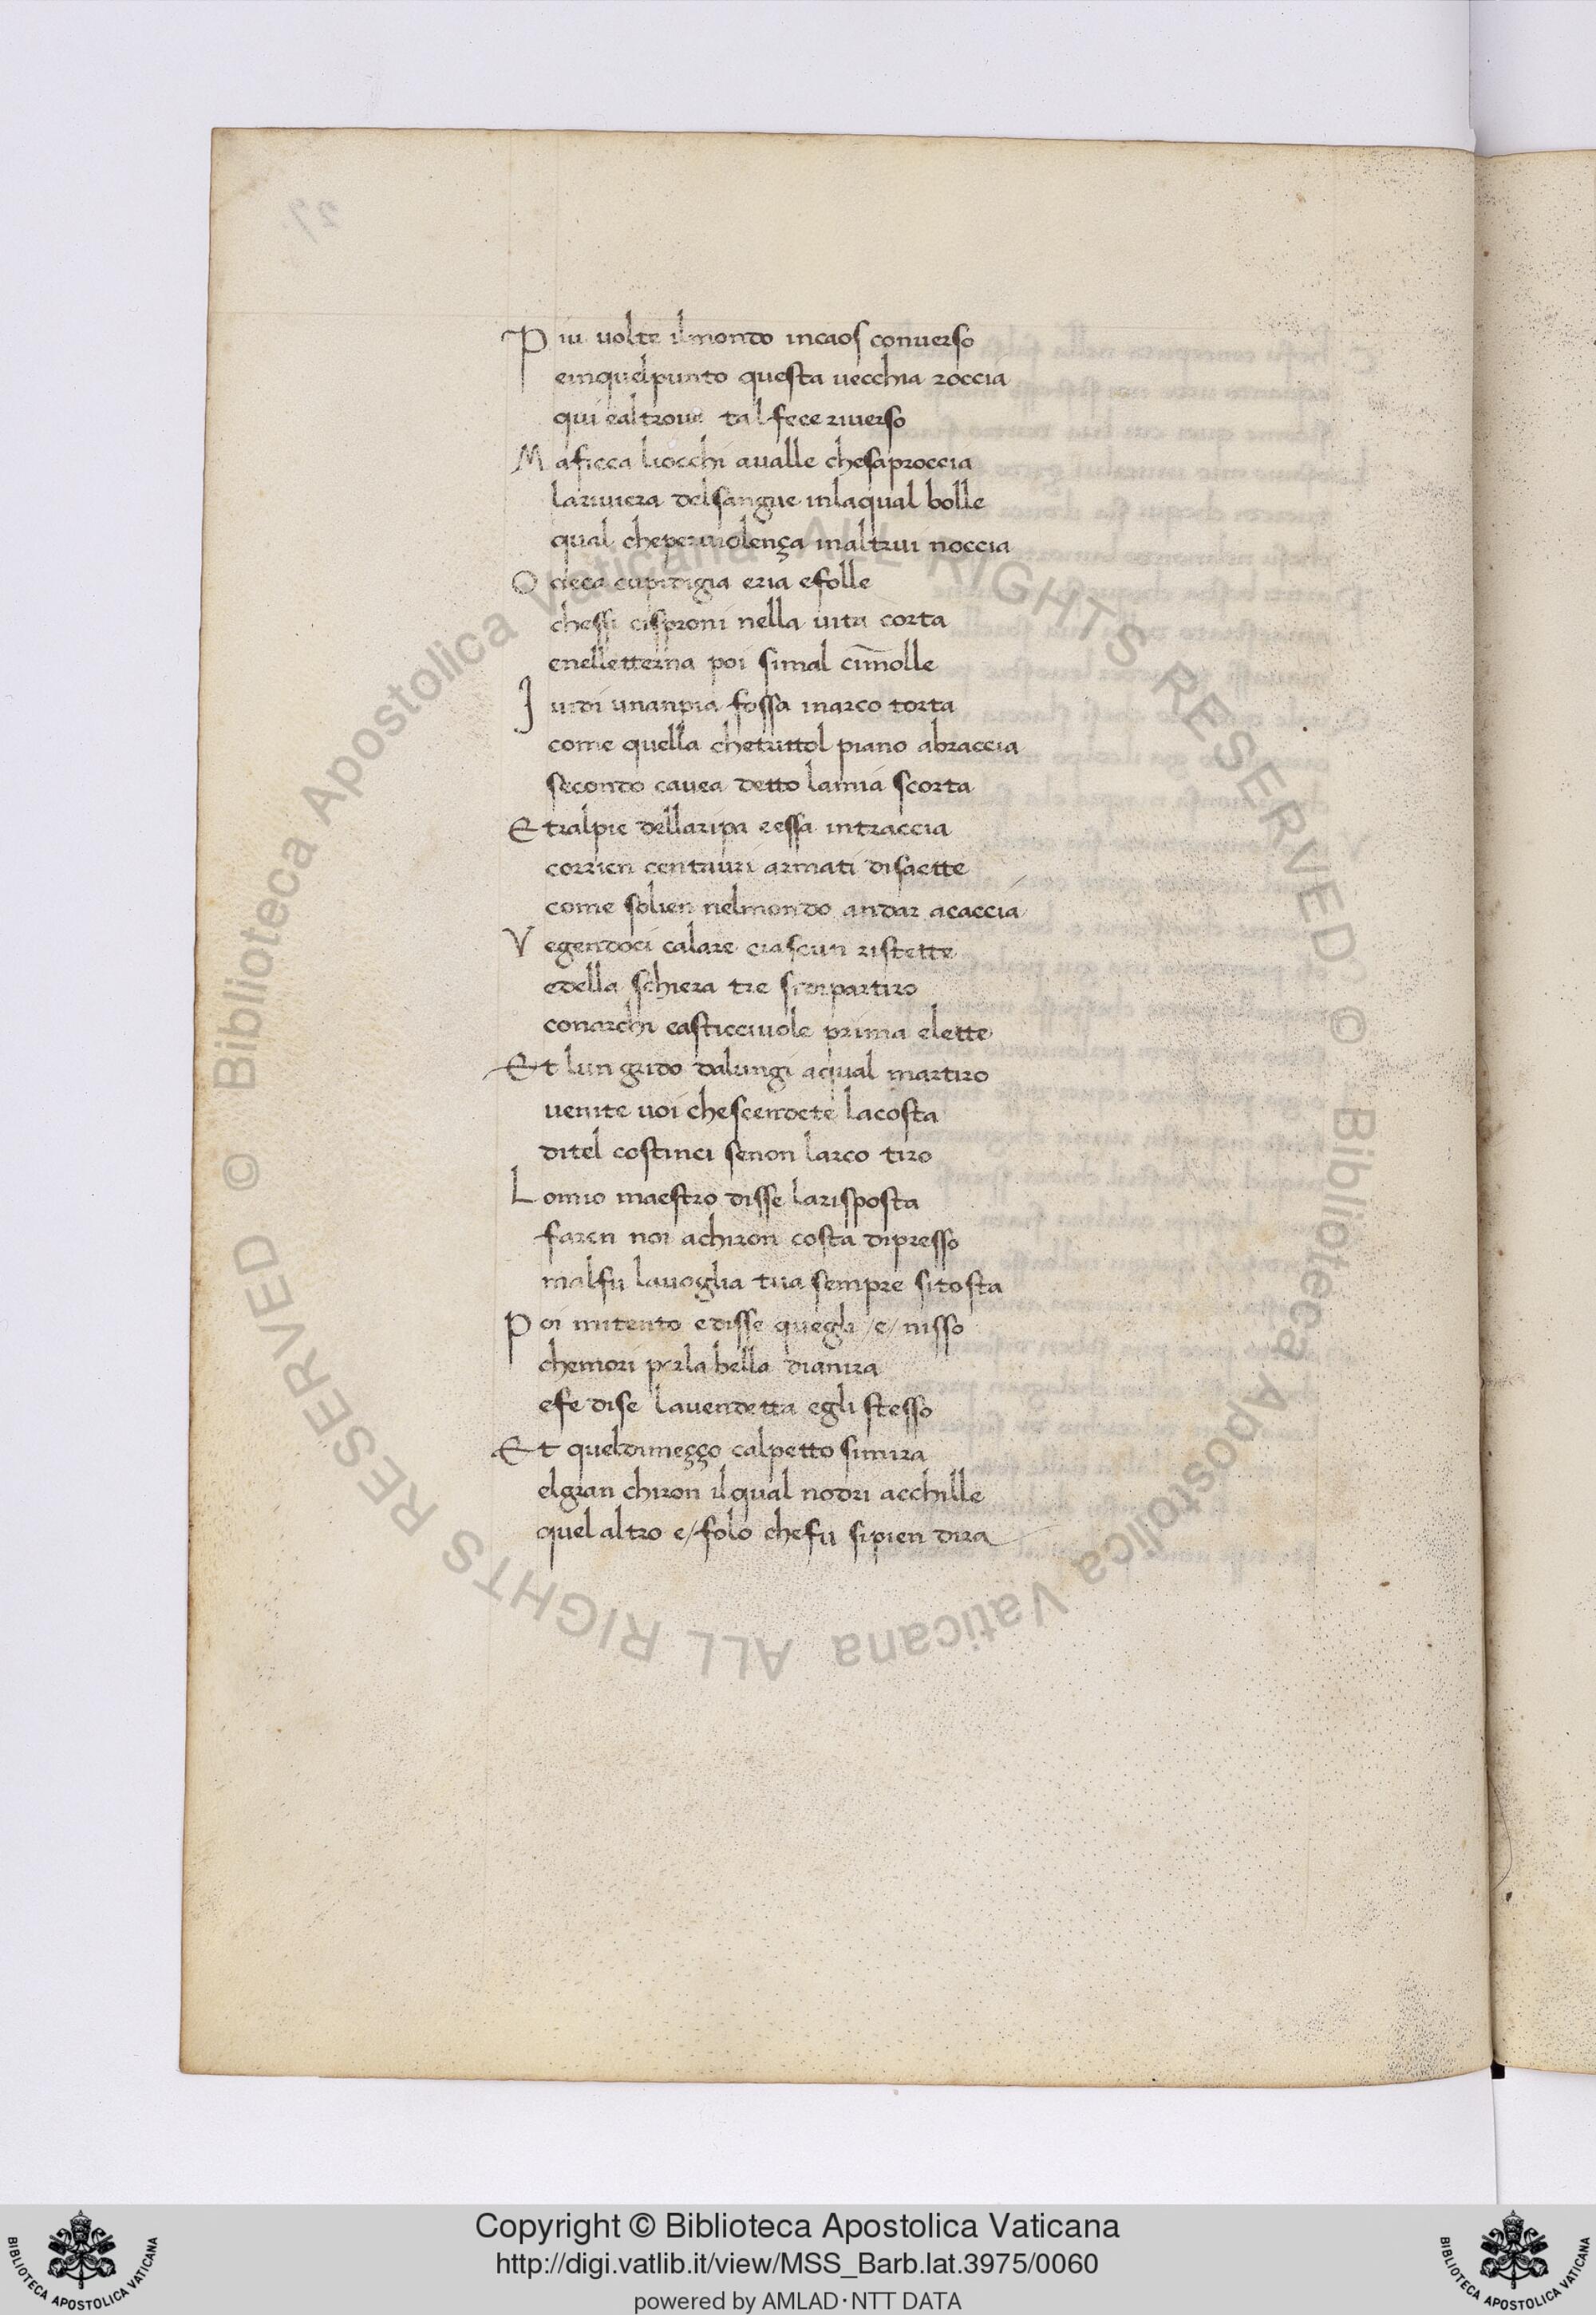 Piu uolte ilmondo incaos conuerso
einquelpunto questa uecchia roccia
qui ealtroue tal fece riuerso
Maficca liocchi aualle chesaproccia
lariuiera delsangue inlaqual bolle
qual cheperuiolença inaltrui noccia
O cieca cupidigia eria efolle
chessi cisproni nella uita corta
enelletterna poi simal cim̅olle
I uidi unanpia fossa inarco torta
come quella chetuttol piano abraccia
secondo cauea detto lamia scorta
Etralpie dellaripa eessa intraccia
corrien centauri armati disaette
come solien nelmondo andar acaccia
Vegendoci calare ciascun ristette
edella schiera tre sidipartiro
conarchi easticciuole prima elette
Et lun grido dalungi aqual martiro
uenite uoi chescendete lacosta
ditel costinci senon larco tiro
Lomio maestro disse larisposta
faren noi achiron costa dipresso
malfu lauoglia tua sempre sitosta
Poi mitento edisse quegli /e/ nisso
chemori perla bella dianira
efe dise lauendetta egli stesso
Et queldimeçço calpetto simira
elgran chiron ilqual nodri acchille
quel altro e/ folo chefu sipien dira
29
© Biblioteca Apostolica Vaticana ALL RIGHTS RESERVED © Biblioteca Apostolica Vaticana ALL RIGHTS RESERVED
Copyright © Biblioteca Apostolica Vaticana
http://digi.vatlib.it/view/MSS_Barb.lat.3975/0060
powered by AMLAD·NTT DATA
BIBLIOTECA APOSTOLICA VATICANA
BIBLIOTECA APOSTOLICA VATICANA